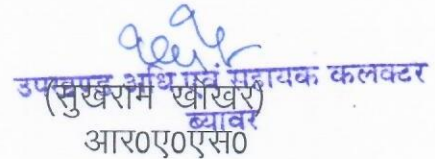 उपखण्ड अधि एवं सहायक कलक्टर
(सुखराम खोखर)
ब्यावर
आर०ए०एस०